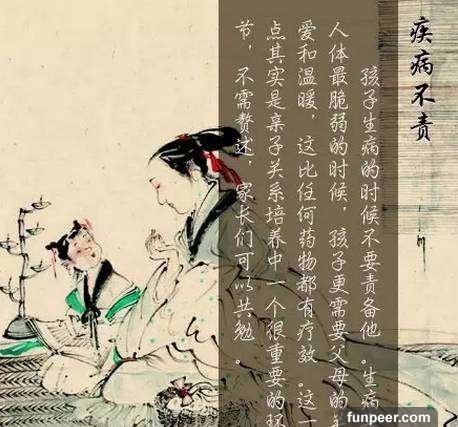 疾病不责
孩子生病的时候不要责备他。生病
人体最脆弱的时候，孩子更需要父母的关
爱和温暖，这比任何药物都有疗效。这一
点其实是亲子关系培养中一个很重要的环
节，不需赘述，家长们可以共勉。
funpeer.com